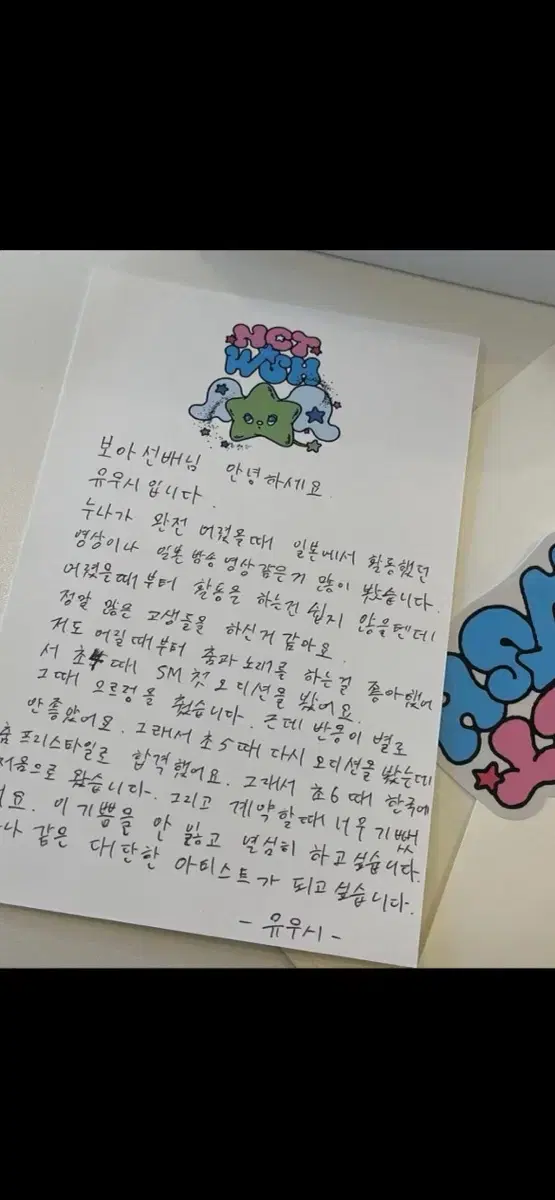 NCT
WISH
보아선배님 안녕하세요.
유우시입니다.
누나가 완전 어렸을때 일본에서 활동했던
영상이나 일본 방송 영상 같은거 많이 봤습니다.
어렸을때부터 활동을 하는건 쉽지 않을텐데
정말 많은 고생들을 하신거 같아요.
저도 어릴때부터 춤과 노래를 하는걸 좋아했어
서 초4때 SM 첫 오디션을 봤어요.
그때 으르렁을 췄습니다. 근데 반응이 별로
안좋았어요. 그래서 초5때 다시 오디션을 봤는데
춤 프리스타일로 합격했어요. 그래서 초6때 한국에
처음으로 왔습니다. 그리고 계약할때 너무 기뻤
어요. 이 기쁨을 안 잃고 열심히 하고싶습니다.
나 같은 대단한 아티스트가 되고싶습니다.
- 유우시 -